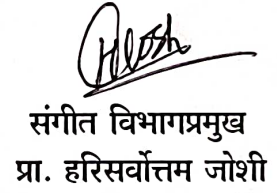 संगीत विभागप्रमुख
प्रा. हरिसर्वोत्तम जोशी